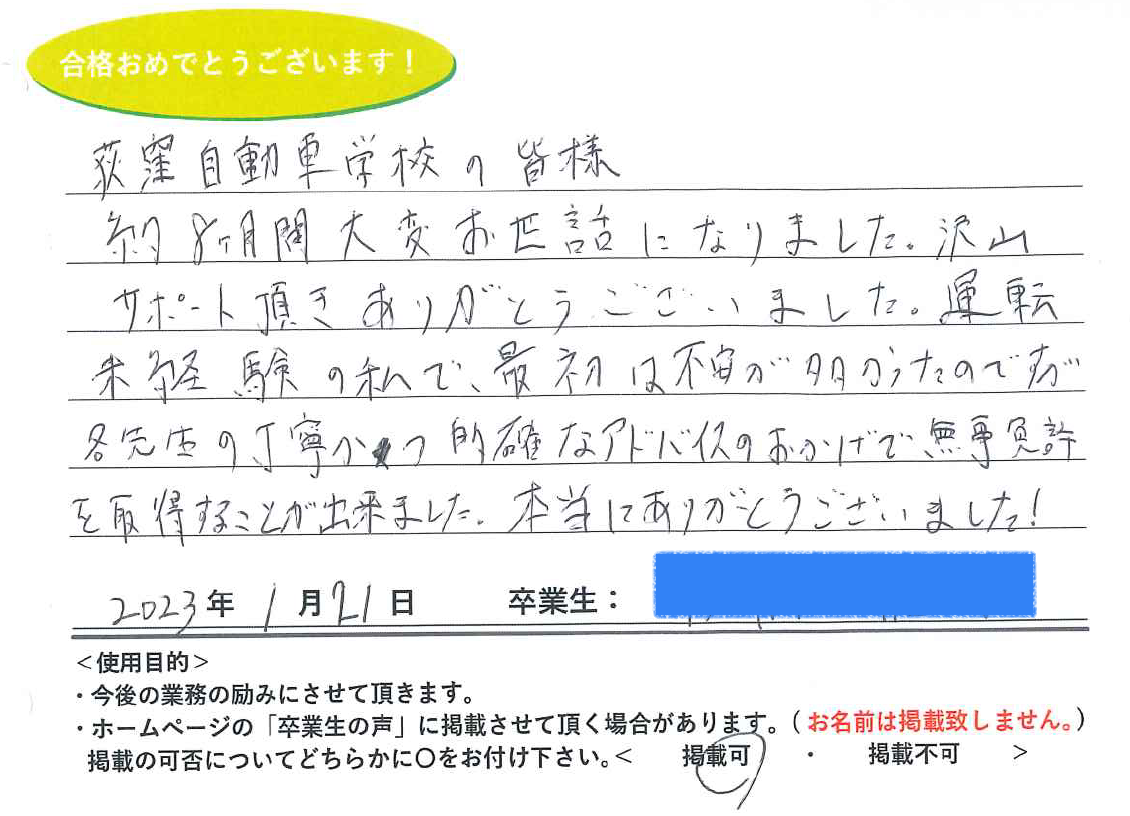 合格おめでとうございます!
荻窪自動車学校の皆様
約8ヶ月間大変お世話になりました。沢山
サポート頂きありがとうございました。運転
未経験の私で、最初は不安が多かったのですが
各先生の丁寧かつ的確なアドバイスのおかげで無事免許
を取得することが出来ました。本当にありがとうございました!
2023年 1月21日 卒業生:
<使用目的>
・今後の業務の励みにさせて頂きます。
・ホームページの「卒業生の声」に掲載させて頂く場合があります。(お名前は掲載致しません。)
掲載の可否についてどちらかに〇をお付け下さい。< 掲載可 ・ 掲載不可 >